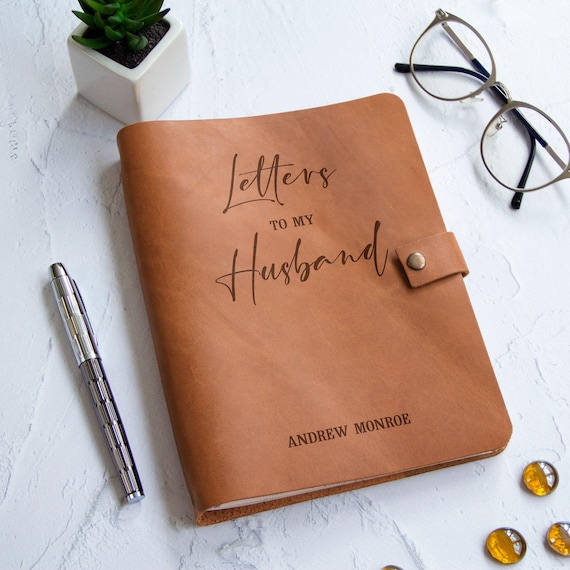 Letters
TO MY
Husband
ANDREW MONROE